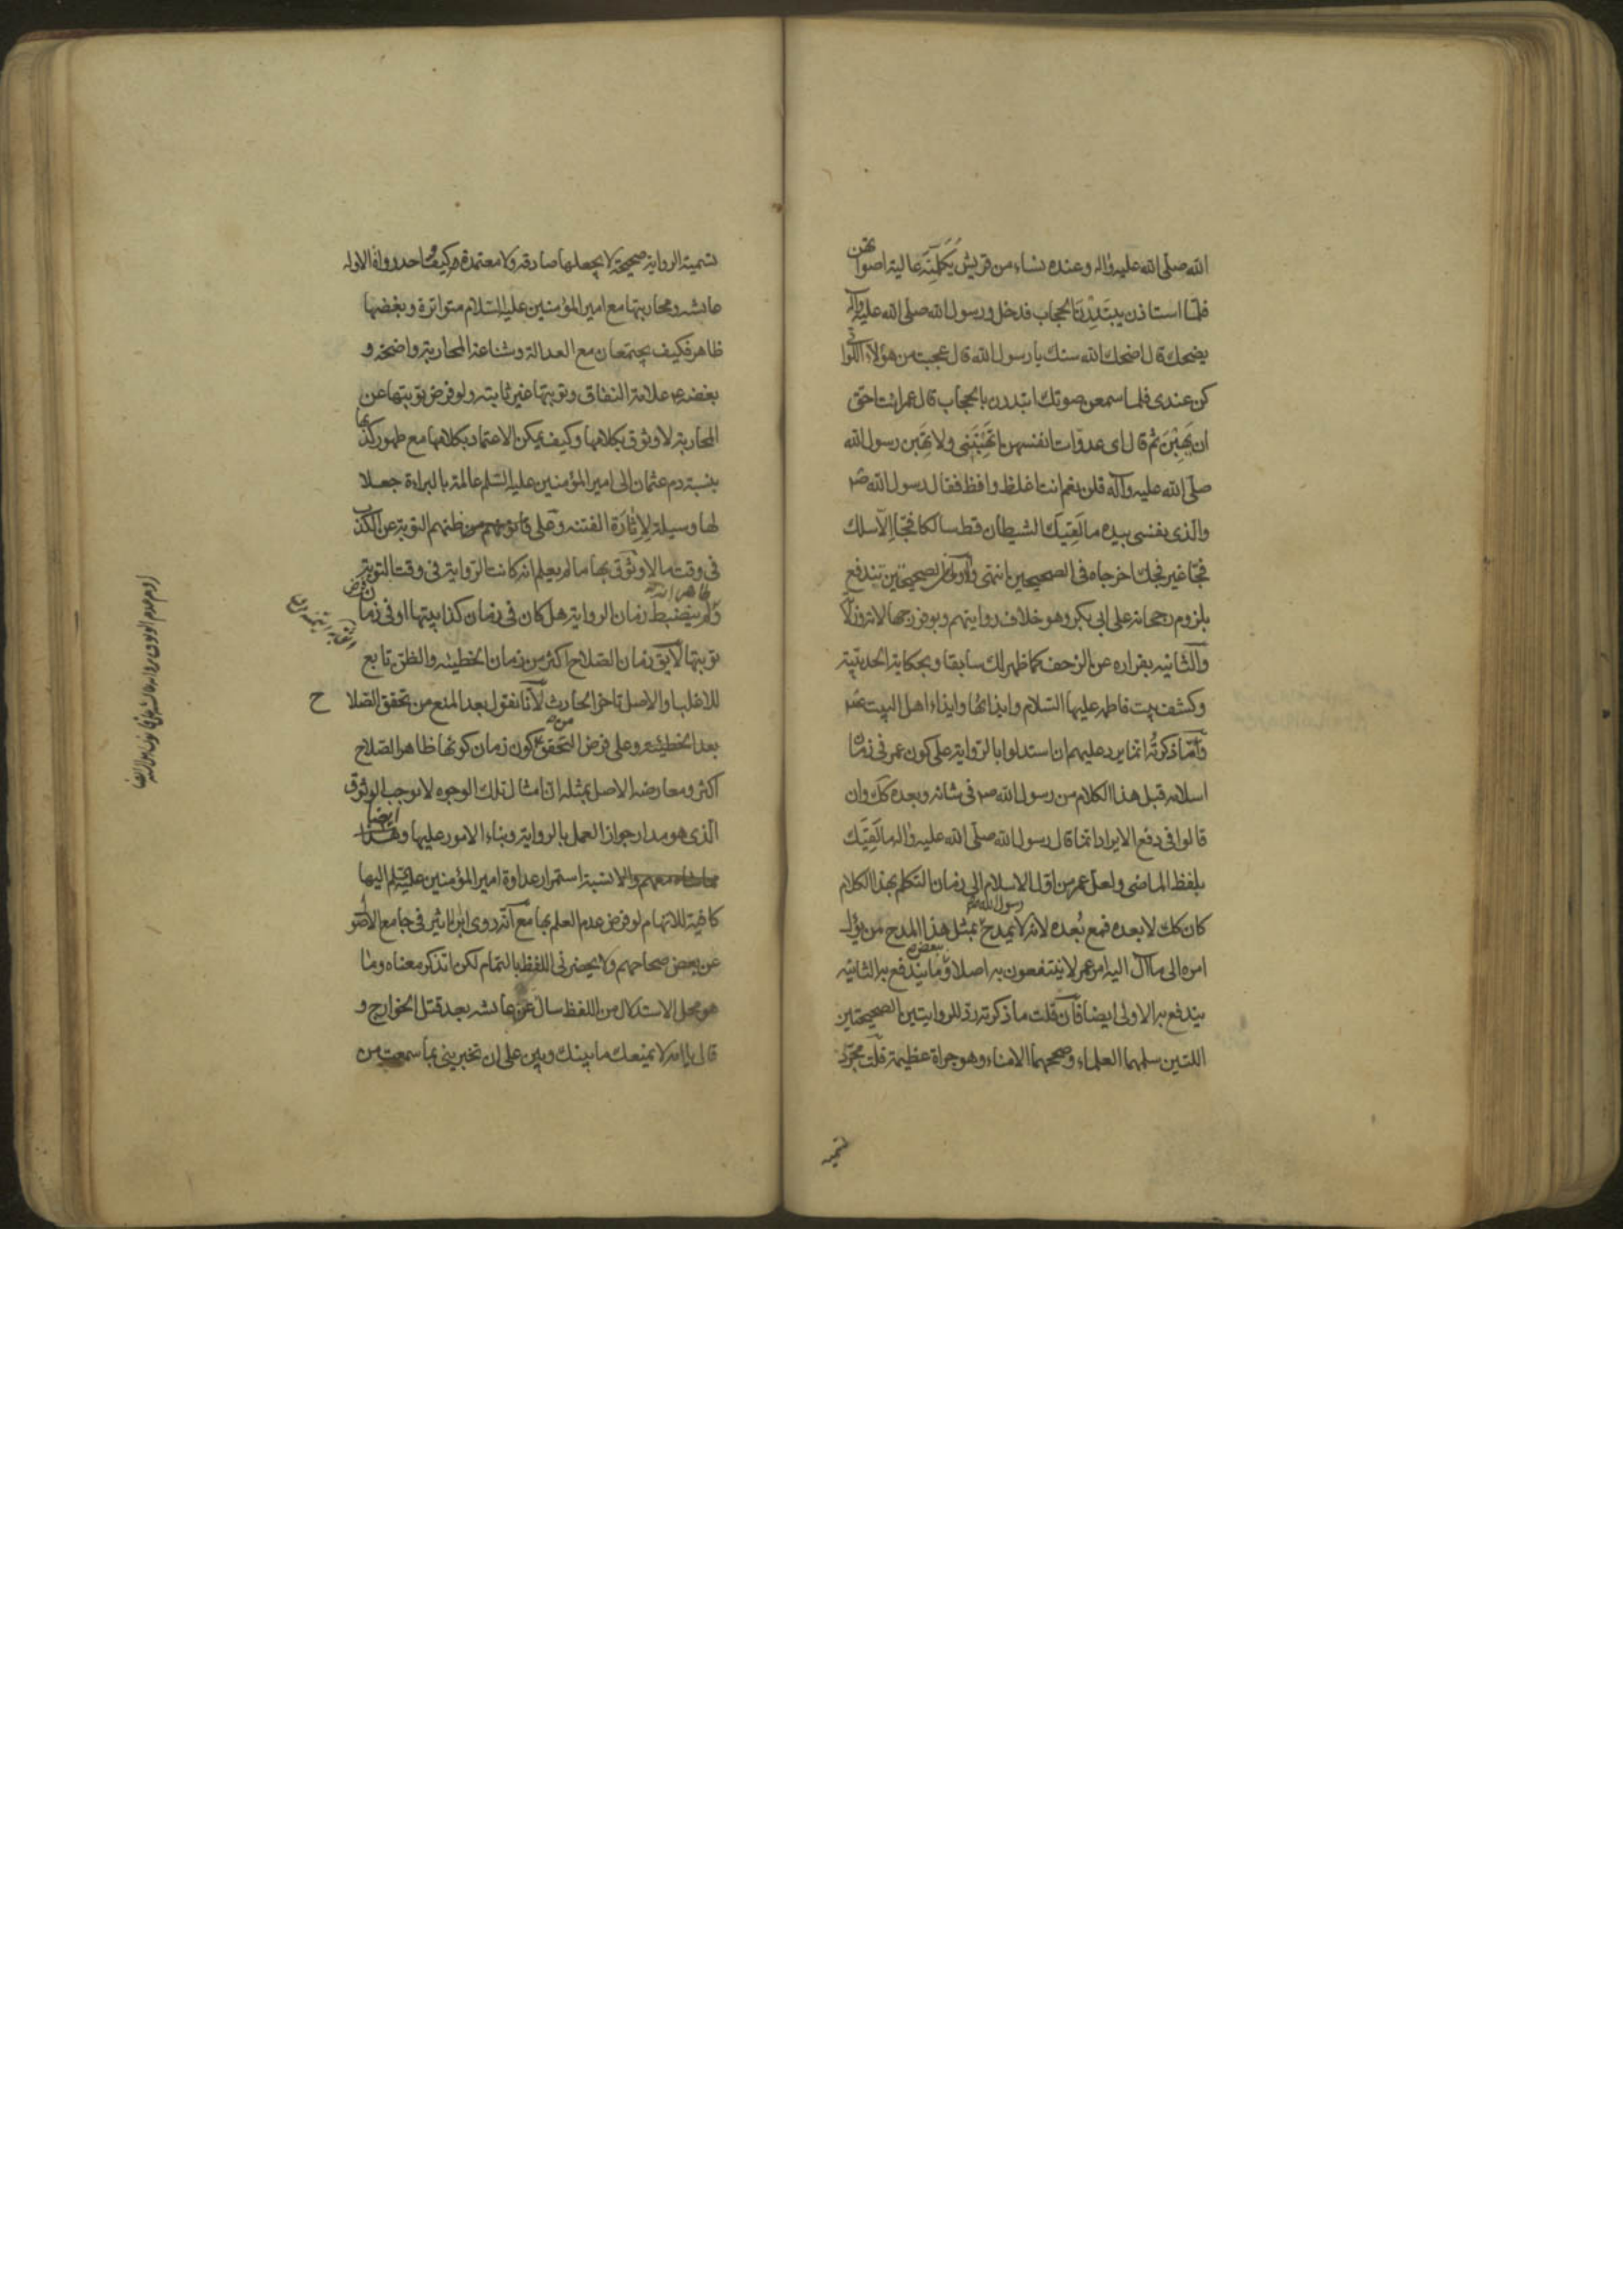 الله صلى الله عليه واله وعنده نساء من قريش يكلمنه عالية اصواتهن
فلما استاذن يبتدرن الحجاب فدخل ورسول الله صلى الله عليه واله
يضحك قال اضحك الله سنك يا رسول الله قال عجبت من هؤلاء اللواتي
كن عندي فلما سمعن صوتك ابتدرن بالحجاب قال عمر انت احق
ان يهبن ثم قال اي عدوات انفسهن اتهبنني ولا تهبن رسول الله
صلى الله عليه وآله قلن نعم انت اغلظ وافظ فقال رسول الله ص
والذي نفسي بيده ما لقيك الشيطان قط سالكا فجا الا سلك
فجا غير فجك اخرجاه في الصحيحين انتهى الصحيحين تندفع
بلزوم رجحانه على ابي بكر وهو خلاف روايتهم
والثانيه بفراره عن الزحف كما ظهر لك سابقا وبحكاية الحديبية
وكشف بيت فاطمه عليها السلام وايذائها وايذاء اهل البيت
وما ذكرته انما يرد عليهم ان استدلوا بالرواية على كون عمر في زمان
اسلامه قبل هذا الكلام من رسول الله ص في شانه وبعده كك وان
قالوا في دفع الايراد انما قال رسول الله صلى الله عليه واله ما لقيك
بلفظ الماضي ولعل عمر من اول الاسلام الى زمان التكلم بهذا الكلام
كان كك لا بعده فمع بعده لانه لا يمدح رسول الله ص بمثل هذا المدح من يؤل
امره الى ما آل اليه امر عمر لا ينتفعون به اصلا وبعض ما يندفع به الثانيه
يندفع به الاولى ايضا فان قلت ما ذكرته رد للروايتين الصحيحتين
اللتين سلمهما العلماء وصححهما الامناء وهو جراة عظيمة قلت مجرد
تسمية
تسمية الرواية صحيحة لا يجعلها صادقه ولا معتمدة كيف واحد رواة الاوله
عايشه ومحاربتها مع امير المؤمنين عليه السلام متواترة وبغضها
ظاهر فكيف يجتمعان مع العدالة وشناعة المحاربة واضحة و
بغضه ع علامة النفاق وتوبتها غير ثابته ولو فرض توبتها عن
المحاربة لا وثوق بكلامها وكيف يمكن الاعتماد بكلامها مع ظهور كذبها
بنسبة دم عثمان الى امير المؤمنين عليه السلم عالمة بالبراءة جعلا
لها وسيلة لاثارة الفتنه وعلى ظنهم التوبة عن الكذب
في وقت ما لا وثوق بها ما لم يعلم انه كانت الرواية في وقت التوبة
ولم ينضبط زمان الرواية هل كان في زمان كذابيتها او في زمان
توبتها لا يق زمان الصلاح اكثر من زمان الخطيئه والظن تابع
للاغلب والاصل تاخر الحادث لانا نقول بعد المنع من تحقق الصلاح
بعد الخطيئه وعلى فرض التحقق كون زمان كونها ظاهر الصلاح
اكثر ومعارضة الاصل بمثله ان امثال تلك الوجوه لا يوجب الوثوق
الذي هو مدار جواز العمل بالرواية وبناء الامور عليها ايضا
والا نسبة استمرار عداوة امير المؤمنين عليه السلم اليها
كافية للاتهام لو فرض عدم العلم بها مع انه روى ابن الاثير في جامع الاصول
عن بعض صحاحهم ولا يحضرني اللفظ بالتمام لكن اتذكر معناه وما
هو محل الاستدلال من اللفظ سال عن عايشه بعد قتل الخوارج و
قال يا امه لا يمنعك ما بينك وبين علي ان تخبريني بما سمعت من